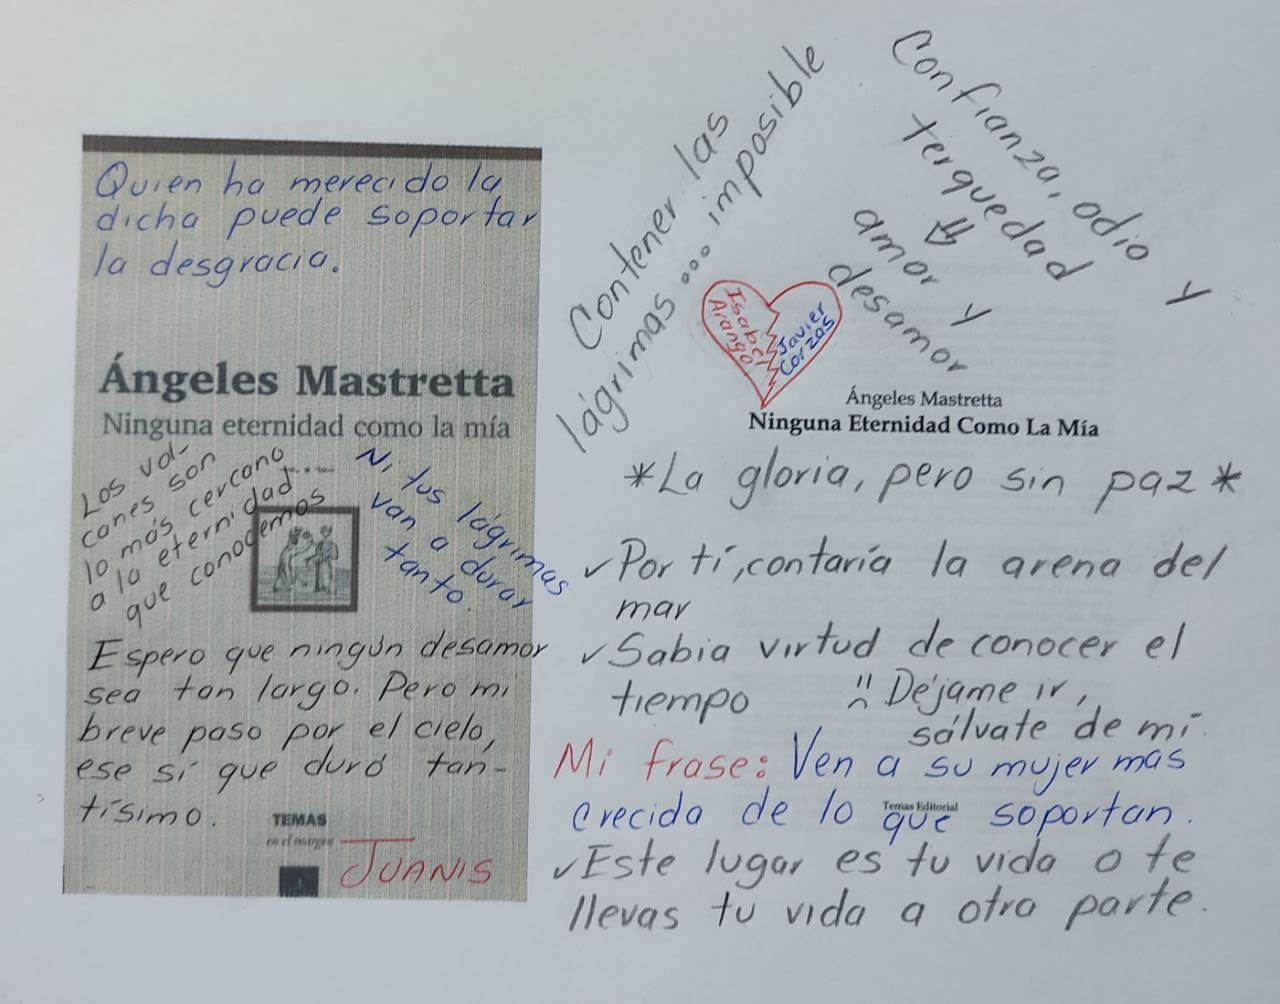 Quien ha merecido la
dicha puede soportar
la desgracia.
Ángeles Mastretta
Ninguna eternidad como la mía
Los vol-
canes son
lo más cercano
a la eternidad....
que conocemos
Ni tus lágrimas
van a durar
tanto.
Espero que ningún desamor
sea tan largo. Pero mi
breve paso por el cielo,
ese sí que duró tan-
tísimo.
TEMAS
en el margen
JUANIS
Contener las
lágrimas... imposible
Confianza, odio y
terquedad
amor y
desamor
Isabel
Arango
Javier
Corzas
Ángeles Mastretta
Ninguna Eternidad Como La Mía
*La gloria, pero sin paz*
✓Por ti, contaría la arena del
mar
✓Sabia virtud de conocer el
tiempo
Déjame ir,
sálvate de mí.
Mi frase: Ven a su mujer mas
crecida de lo que soportan.
Temas Editorial
✓Este lugar es tu vida o te
llevas tu vida a otra parte.